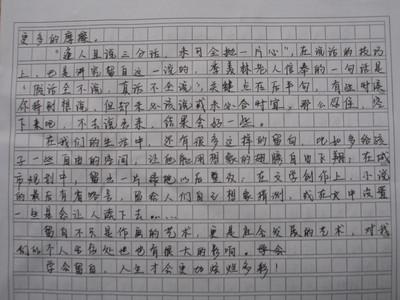 更多的摩擦。
"逢人且说三分话，未可全抛一片心"，在说话的技巧
上，也是讲究留白这一说的，季羡林先人信奉的一句话是
"假话全不说，真话不全说"，关键点在后半句，有些时候
你特别想说，但却未必该说或未必合时宜，那么停住，空
下来吧，不去说出来，结果会好一些。
在我们的生活中，还有很多这样的留白，比如多给孩
子一些自由的空间，让他能用想象的翅膀自由飞翔；在城
市规划中，留出一片绿地以后整改；在文学创作上，小说
的最后有省略号，留给人们自己想象猜测，我在文中设置
一些是会让人读下去……
留白不只是作画的艺术，更是社会发展的艺术，对我
们的个人生活处也也有很大的影响。学会
学会留白，人生才会更加炫烂多彩！